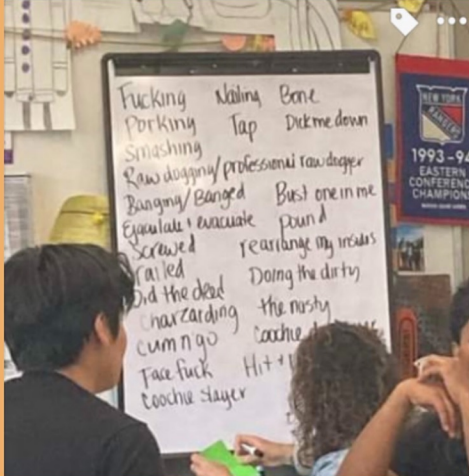 Fucking Nailing Bone
Porking Tap Dick me down
Smashing
Raw dogging/professional raw dogger
Banging/Banged Bust one in me
Ejaculate + evacuate Pound
Screwed rearrange my insides
railed Doing the dirty
Did the deed the nasty
Charzarding Coochie
cum n go Hit
Face fuck
Coochie slayer
NEW YORK
RANGERS
1993-94
EASTERN
CONFERENCE
CHAMPIONS